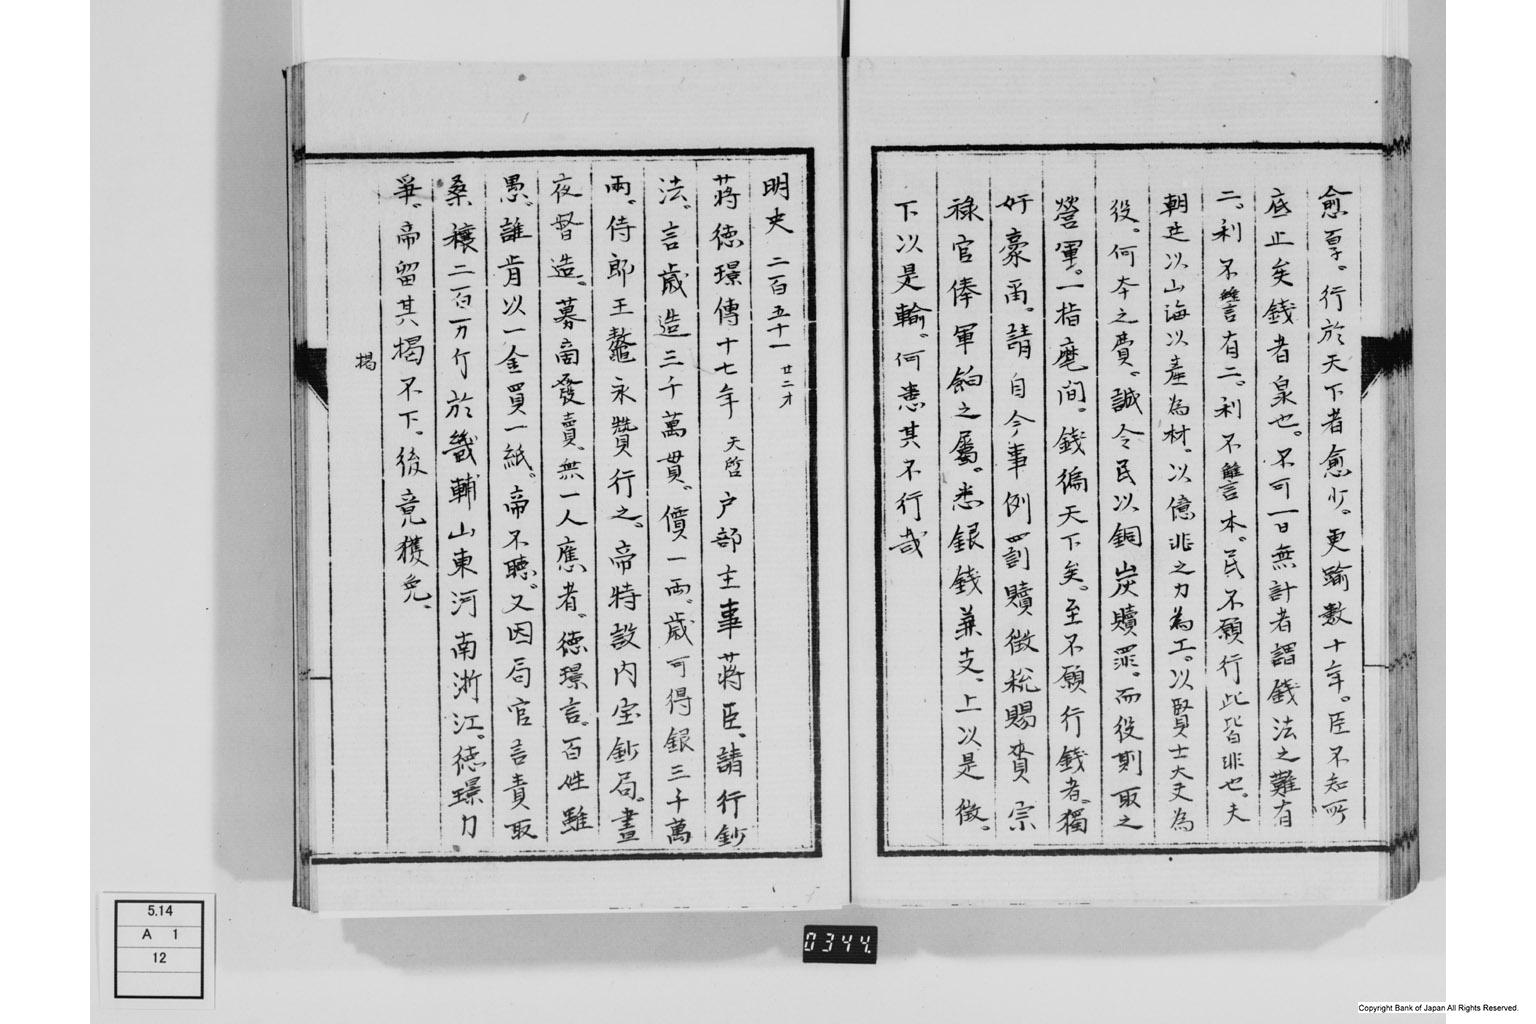 愈享。行於天下者愈少。更踰數十年。臣不知所
底止矣錢者泉也。不可一日無計者謂錢法之難有
二。利不讐有二。利不讐本。民不願行此皆非也。夫
朝廷以山海以產為材。以億兆之力為工。以賢士大夫為
役。何本之費。誠令民以銅炭贖罪。而役則取之
營軍。一指麾間。錢徧天下矣。至不願行錢者。獨
奸豪爾。請自今事例罰贖徵稅賜賚宗
祿官俸軍餉之屬。悉銀錢兼支。上以是徵。
下以是輸。何患其不行哉
明史 二百五十一 廿二才
蔣德璟傳十七年 天啓 户部主事蔣臣。請行鈔
法。言歲造三千萬貫。價一兩。歲可得銀三千萬
兩。侍郎王鰲永贊行之。帝特設内宝鈔局。晝
夜督造。募商發賣。無一人應者。德璟言。百姓雖
愚。誰肯以一金買一紙。帝不聽。又因局官言責取
桑穰二百万斤於畿輔山東河南浙江。德璟力
爭。帝留其揭不下。後竟獲免。
揭
5.14
A 1
12
0344.
Copyright Bank of Japan All Rights Reserved.